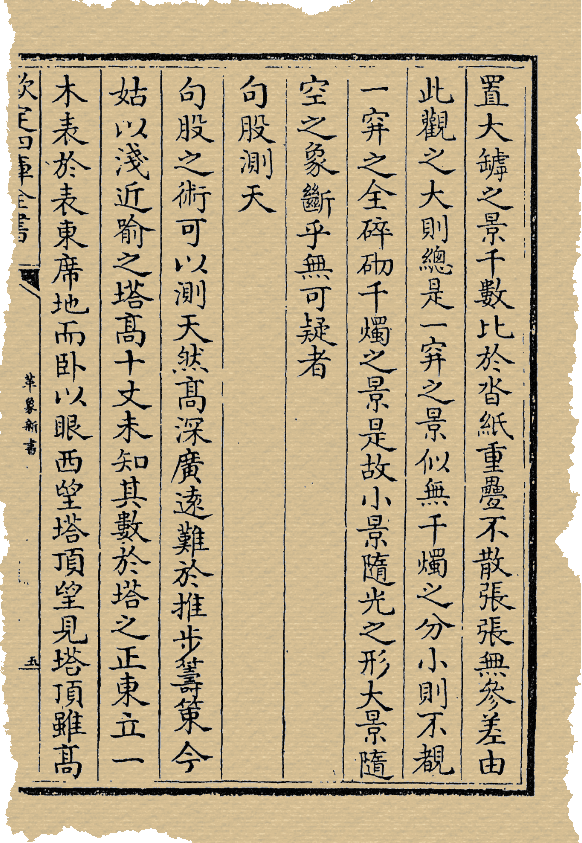 置大罅之景千數比於沓紙重疊不散張張無參差由
此觀之大則總是一穽之景似無千燭之分小則不覩
一穽之全碎砌千燭之景是故小景隨光之形大景隨
空之象斷乎無可疑者
句股測天
句股之術可以測天然髙深廣遠難於推步籌策今
姑以淺近喻之塔髙十丈未知其數於塔之正東立一
木表於表東席地而卧以眼西望塔頂望見塔頂雖髙
欽定四庫全書
革象新書
五